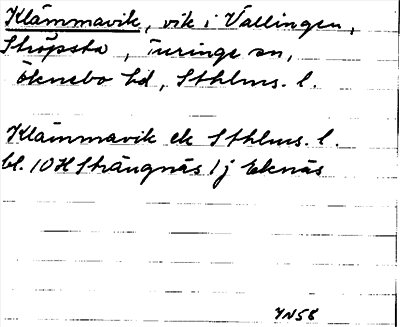 Klämmavik, vik i Vallingen,
Ströpsta, Turinge sn,
Öknebo hd, Sthlms. l.
Klämmavik ek Sthlms. l.
bl. 10 H Strängnäs 1 j Eknäs
YN58